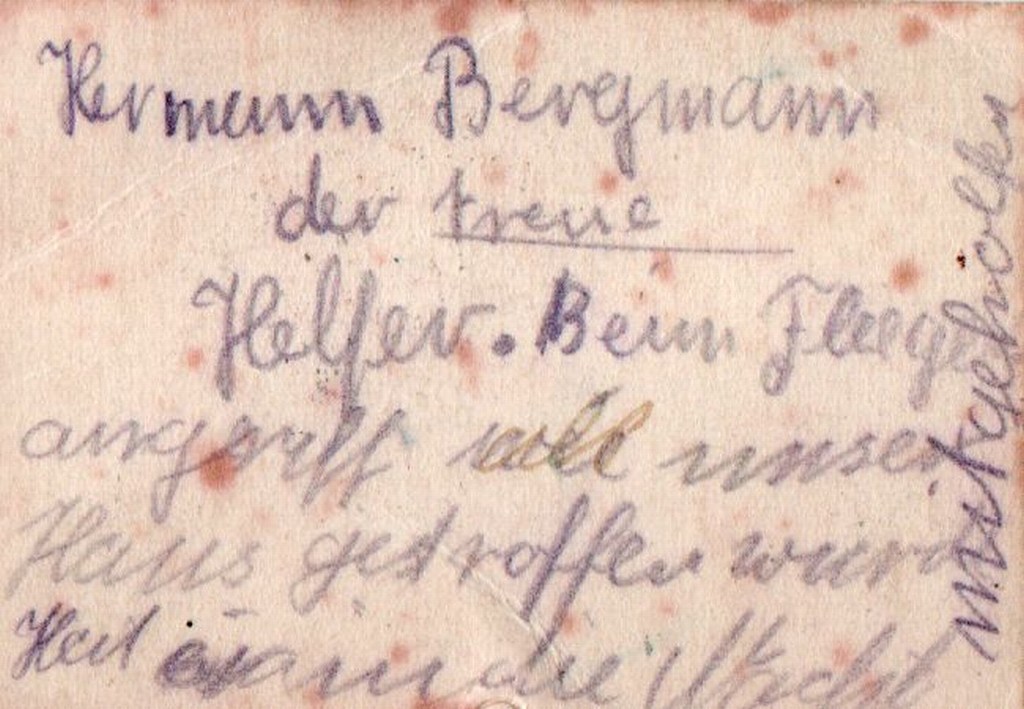 Hermann Bergmann
der treue
Helfer. Beim Fliege
angriff unser
Haus getroffen wurd
Hat in die
mitgeholfen